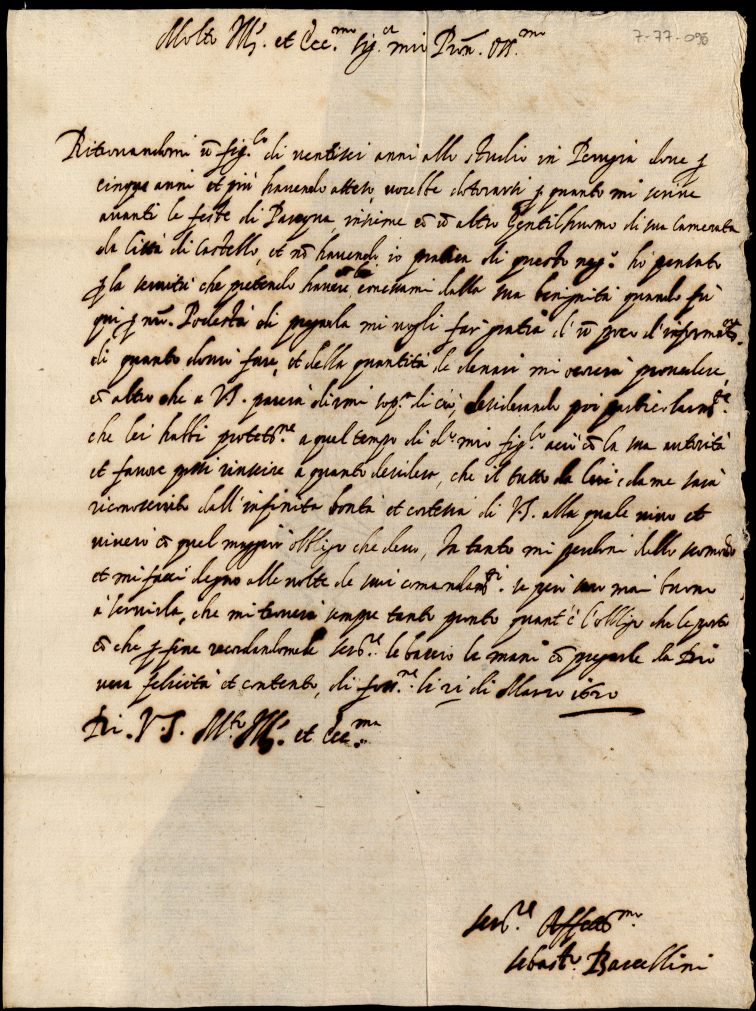 Molto Ill.e et Ecc.mo Sig.or mio Pron. Oss.mo
7-77-096
Ritrouandomi ũ fig.lo di uentisei anni allo studio in Perugia doue ꝑ
cinque anni et più hauendo atteso uorebbe dotorarsi ꝑ quanto mi scriue
auanti le feste di Pasqua, insieme cõ ũ altro Gentilhuomo di sua Camerata
da Città di Castello, et nõ hauendo io pratica di questo neg.o hò pensato
ꝑ la seruitù che pretendo hauere cõ essa dalla sua benignità quando fù
qui ꝑ nro. Podestà di pregarla mi uogli far gratia d'ũ poco d'informat.ne
di quanto deuo fare, et della quantità de denari mi conuerrà prouedere,
cõ altro che a VS. parerà dirmi sop.a di ciò, desiderando poi particolarm.te
che lei habbi protet.ne a quel tempo di d.o mio fig.lo acciò cõ la sua autorità
et fauore possi riuscire a quanto desidero, che il tutto da lui, et da me sarà
riconosciuto dall'infinita bontà et cortesia di VS. alla quale uiuo et
uiuerò cõ quel maggior obbligo che deuo, In tanto mi perdoni dello scomodo
et mi facci degno alle uolte de suoi comandam.ti se però son mai buono
à seruirla, che mi trouerà sempre tanto pronto quant'è l'obbligo che le porto
cõ che ꝑ fine recordandomele ser.re le baccio le mani cõ pregarle da Dio
uera felicità et contento, di li di Marzo 1620
Di. V.S. M.to Ill.e et Ecc.ma
Ser.re Affett.mo
Sebast.o Baccellini